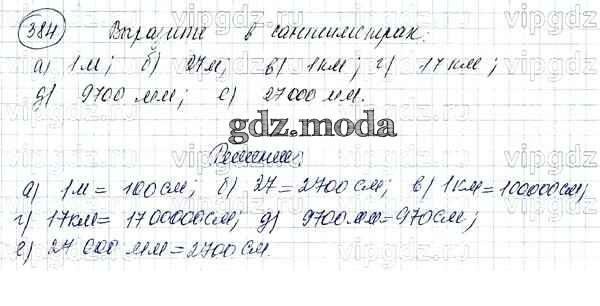 384 Выразите в сантиметрах:
а) 1 м; б) 27 м; в) 1 км; г) 17 км;
д) 9700 мм; е) 27000 мм.
gdz.moda
Решение:
а) 1 м = 100 см; б) 27 = 2700 см; в) 1 км = 100000 см;
г) 17 км = 1700000 см; д) 9700 мм = 970 см;
е) 27 000 мм = 2700 см.